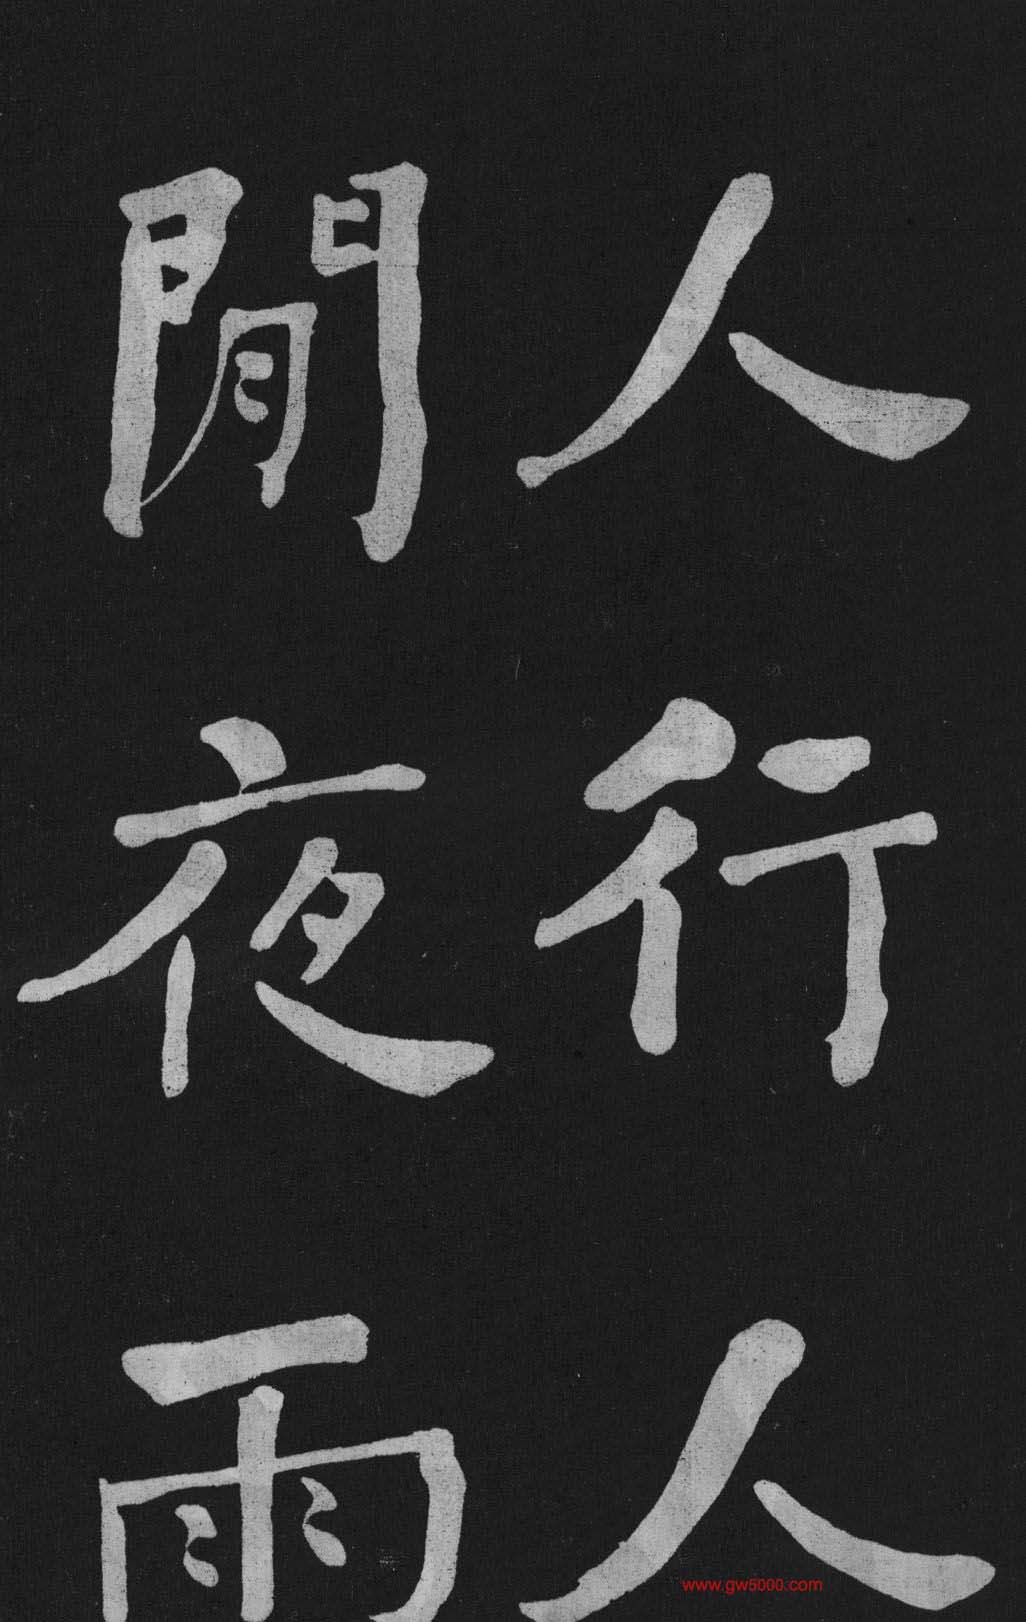 人行人
閒夜雨
www.gw5000.com